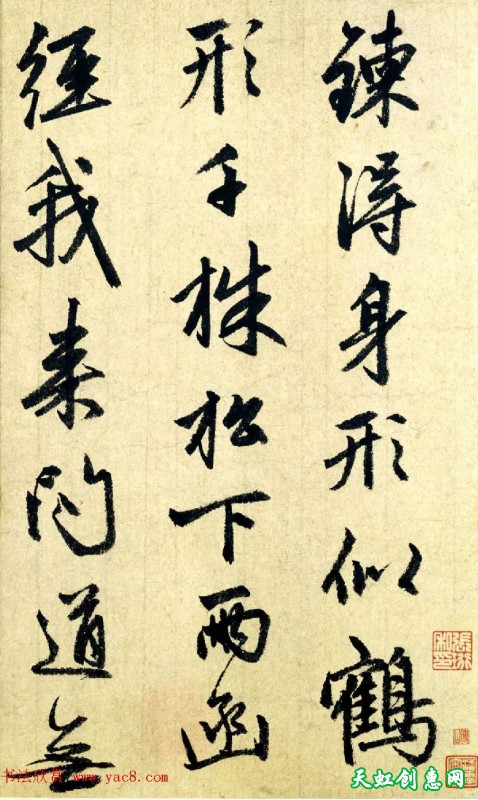 鍊得身形似鶴
形千株松下兩函
經我来問道無
书法欣赏 www.yac8.com
天虹创惠网